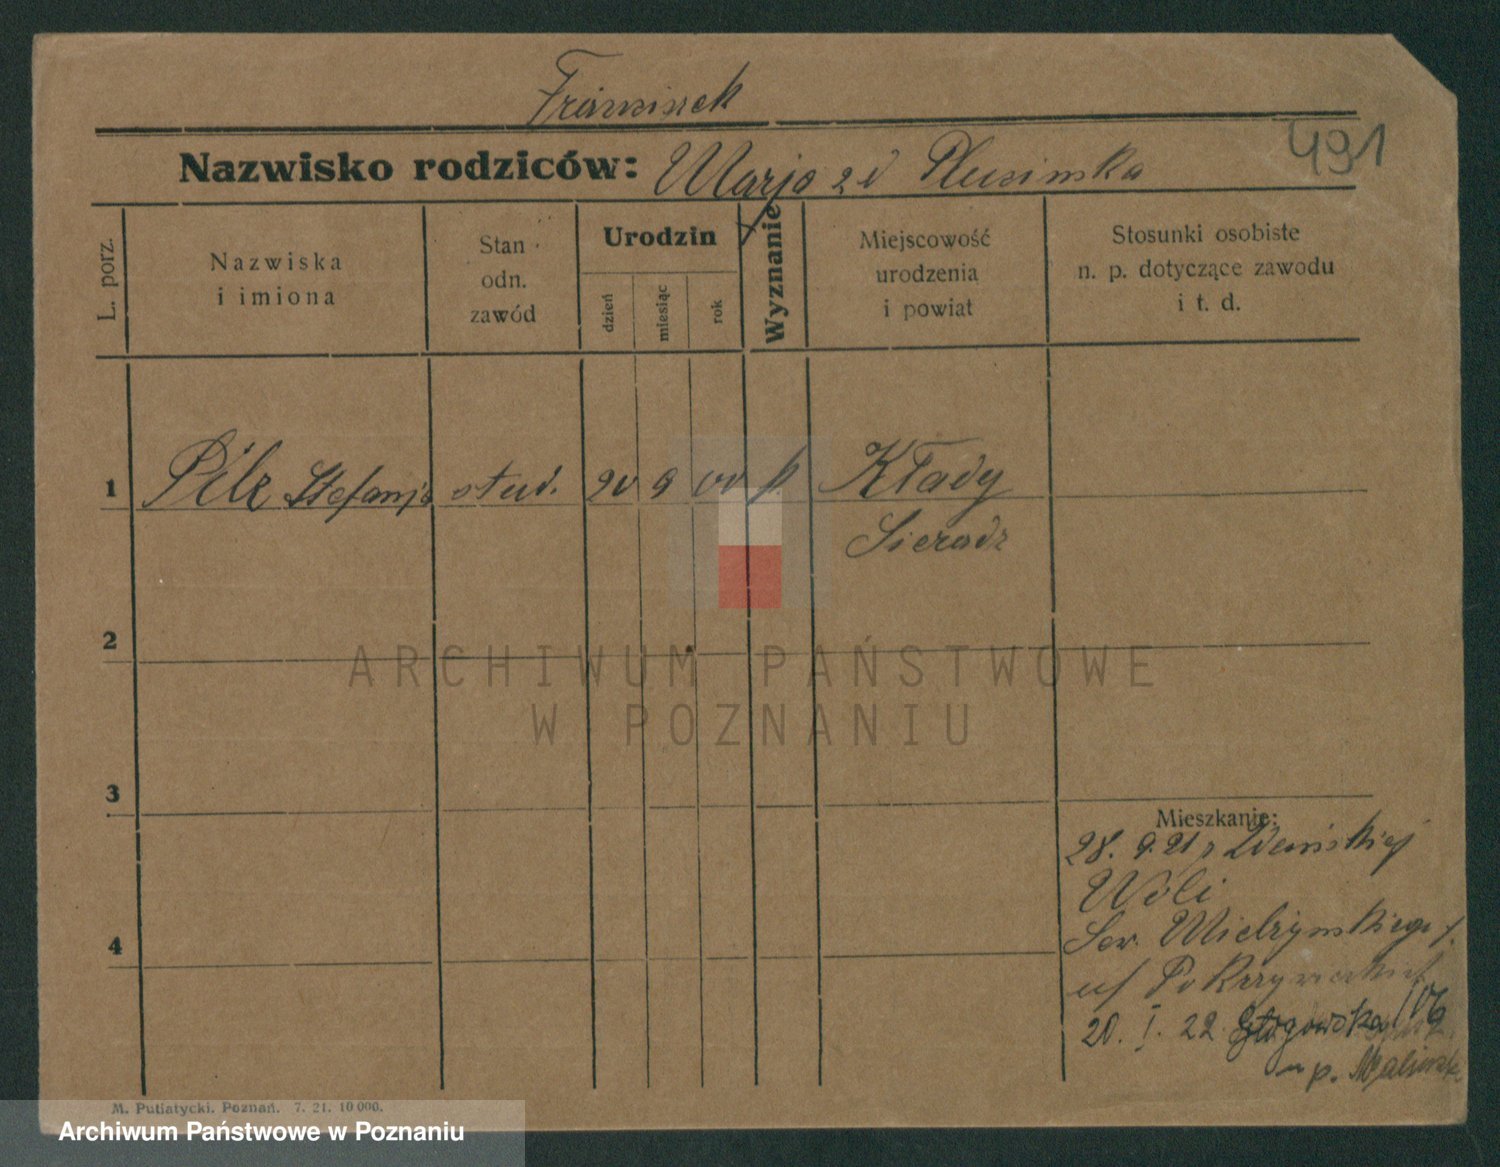 Franciszek
491
Nazwisko rodziców: Marja zd
L. porz.
Nazwiska i imiona
Stan odn. zawód
Urodzin
dzień
miesiąc
rok
Wyznanie
Miejscowość urodzenia i powiat
Stosunki osobiste n. p. dotyczące zawodu i t. d.
1 Pilz Stefanja stud. 20 9 00 k Kłady
Sieradz
2
ARCHIWUM PAŃSTWOWE
W POZNANIU
3
Mieszkanie:
28. 9. 21 z Zduńskiej
Woli
4
20. I. 22 Głogowska 106
p.
M. Putiatycki. Poznań. 7. 21. 10 000.
Archiwum Państwowe w Poznaniu